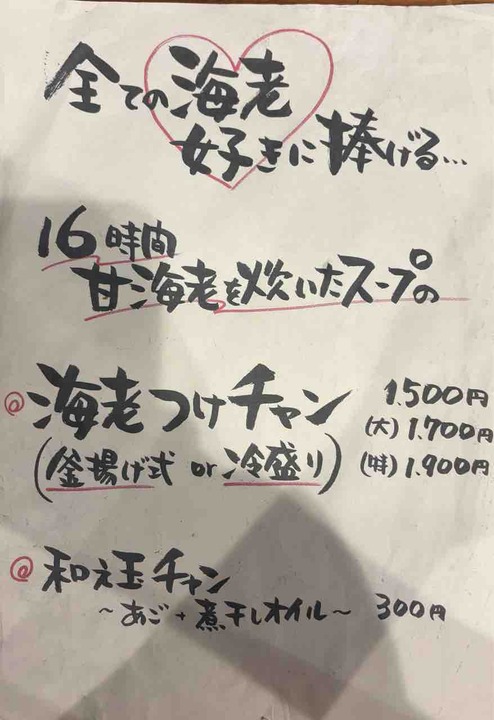 全ての海老
好きに捧げる…
16時間
甘海老を炊いたスープの
海老つけチャン 1.500円
(大) 1.700円
(釜揚げ式 or 冷盛り) (特) 1.900円
和え玉チャン
～あご＋煮干しオイル～ 300円